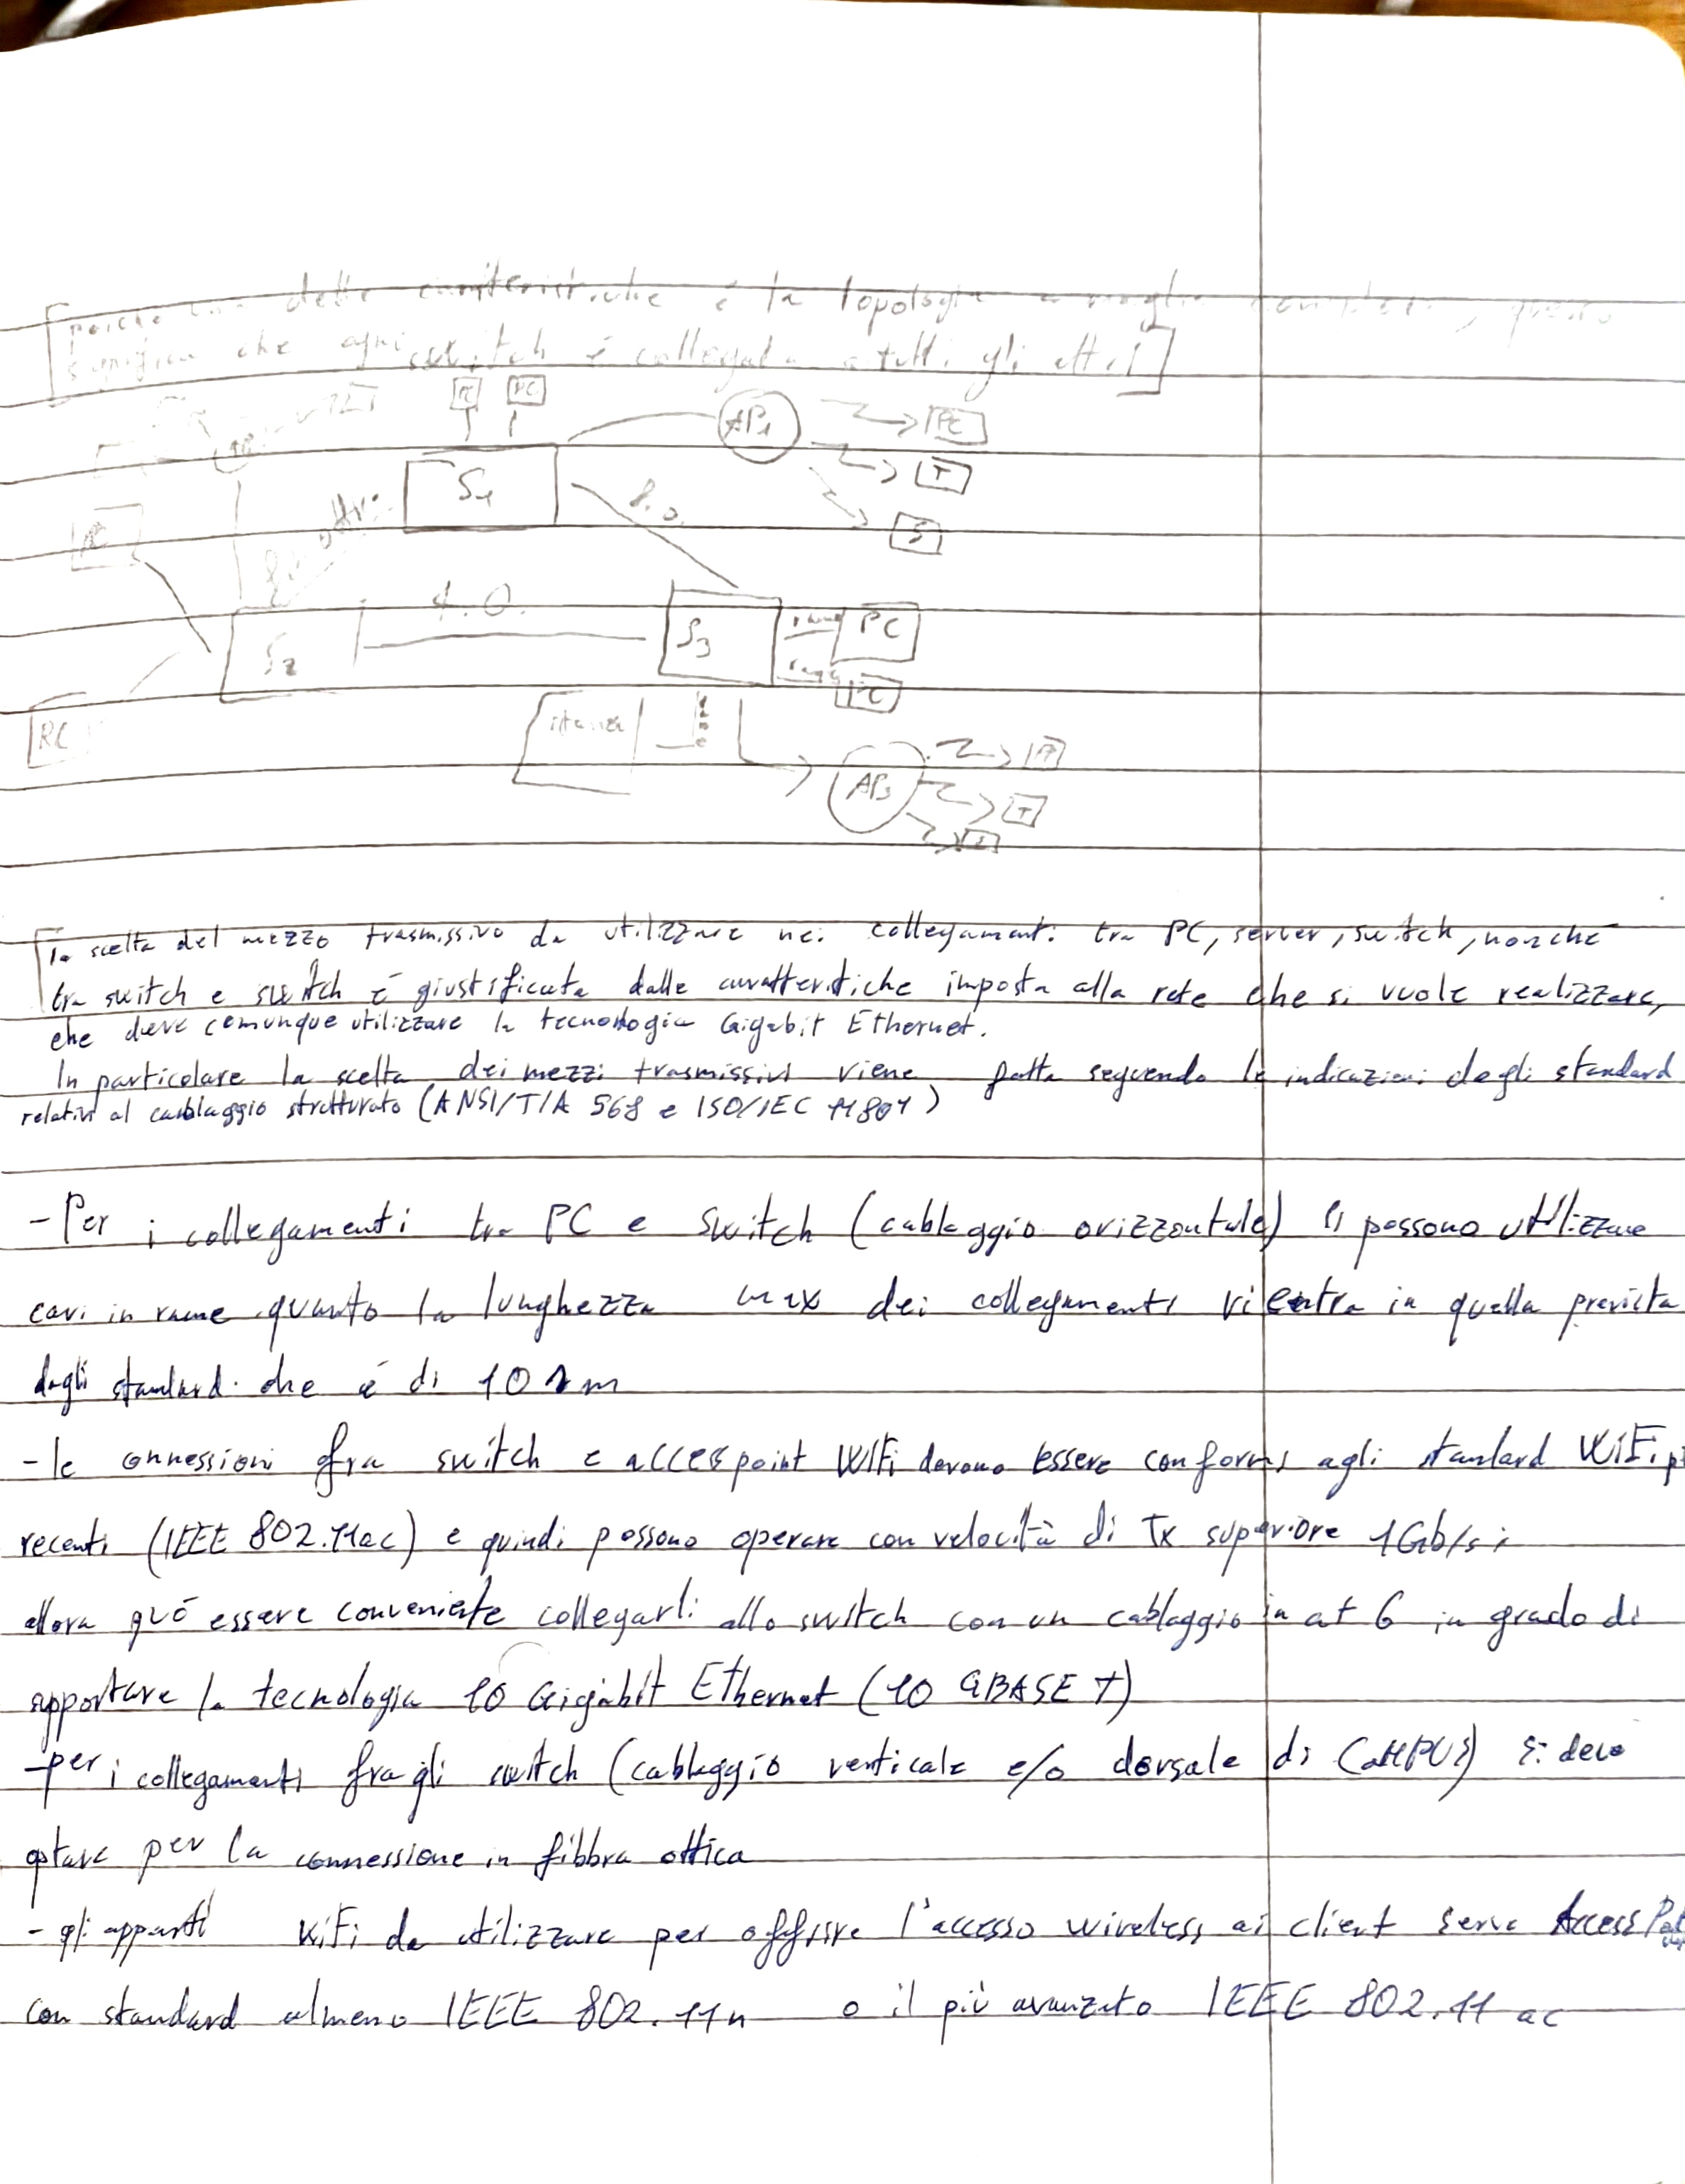 poiché una delle caratteristiche è la topologia a maglia completa, questo
significa che ogni switch è collegato a tutti gli altri
PC PC
AP1 PC
S1 T
f.o. S
PC
f.o.
S2 S3 rame PC
rame PC
PC
stanza
AP3 T
La scelta del mezzo trasmissivo da utilizzare nei collegamenti tra PC, server, switch, nonché
tra switch e switch è giustificata dalle caratteristiche imposta alla rete che si vuole realizzare,
che deve comunque utilizzare la tecnologia Gigabit Ethernet.
In particolare la scelta dei mezzi trasmissivi viene fatta seguendo le indicazioni degli standard
relativi al cablaggio strutturato (ANSI/TIA 568 e ISO/IEC 11801)
- Per i collegamenti tra PC e switch (cablaggio orizzontale) si possono utilizzare
cavi in rame quanto la lunghezza max dei collegamenti rientra in quella prevista
dagli standard che è di 101m
- le connessioni fra switch e access point WiFi devono essere conformi agli standard WiFi
recenti (IEEE 802.11ac) e quindi possono operare con velocità di Tx superiore 1Gb/s;
allora può essere conveniente collegarli allo switch con un cablaggio in at 6 in grado di
supportare la tecnologia 10 Gigabit Ethernet (10 GBASE T)
- per i collegamenti fra gli switch (cablaggio verticale e/o dorsale di CAMPUS) si deve
optare per la connessione in fibbra ottica
- gli apparti WiFi da utilizzare per offrire l'accesso wireless ai client serve Access
con standard almeno IEEE 802.11n o il più avanzato IEEE 802.11 ac